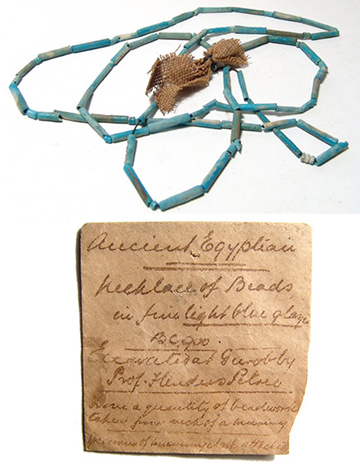 Ancient Egyptian
Necklace of Beads
in fine light blue glaze
Excavated at Gurob by
Prof. Flinders Petrie
From a quantity of beadwork
taken from neck of a mummy